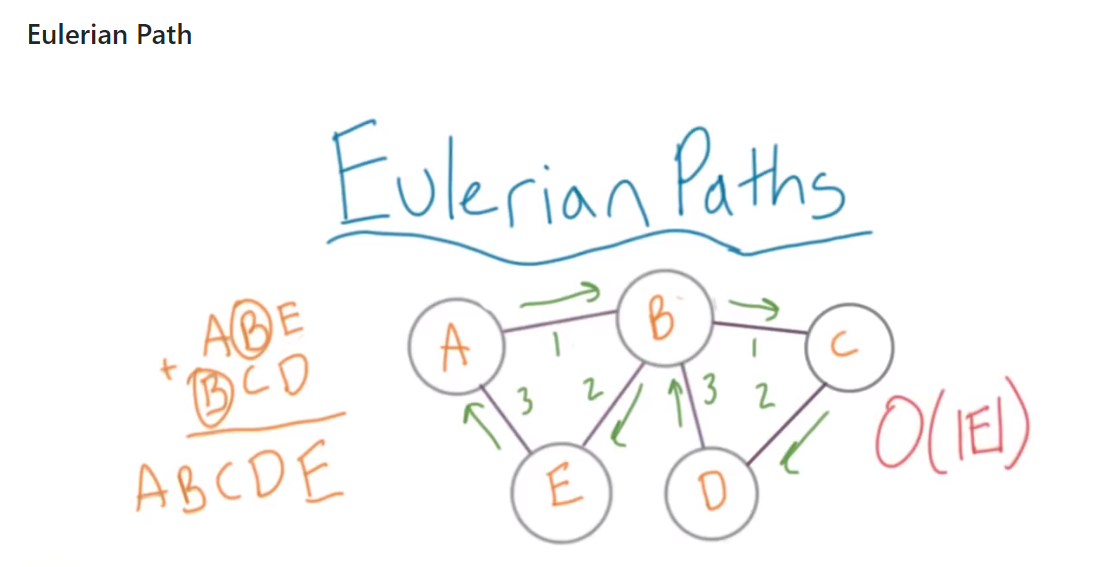 Eulerian Path
Eulerian Paths
ABE
+ BCD
ABCDE
A
B
C
1
1
3
2
3
2
E
D
O(|E|)